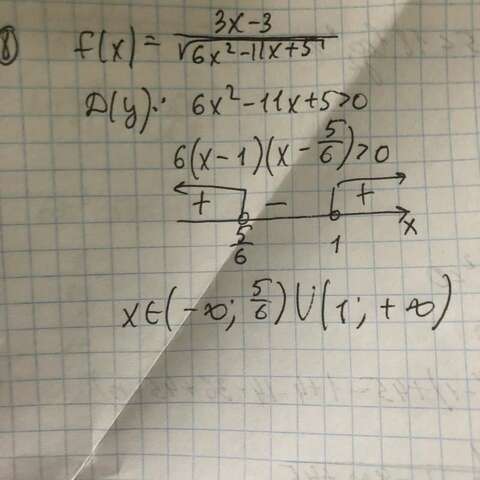 8) f(x) = (3x-3)/√(6x²-11x+5)
D(y): 6x²-11x+5>0
6(x-1)(x-5/6)>0
+ - +
5/6 1 x
x∈(-∞; 5/6)∪(1; +∞)